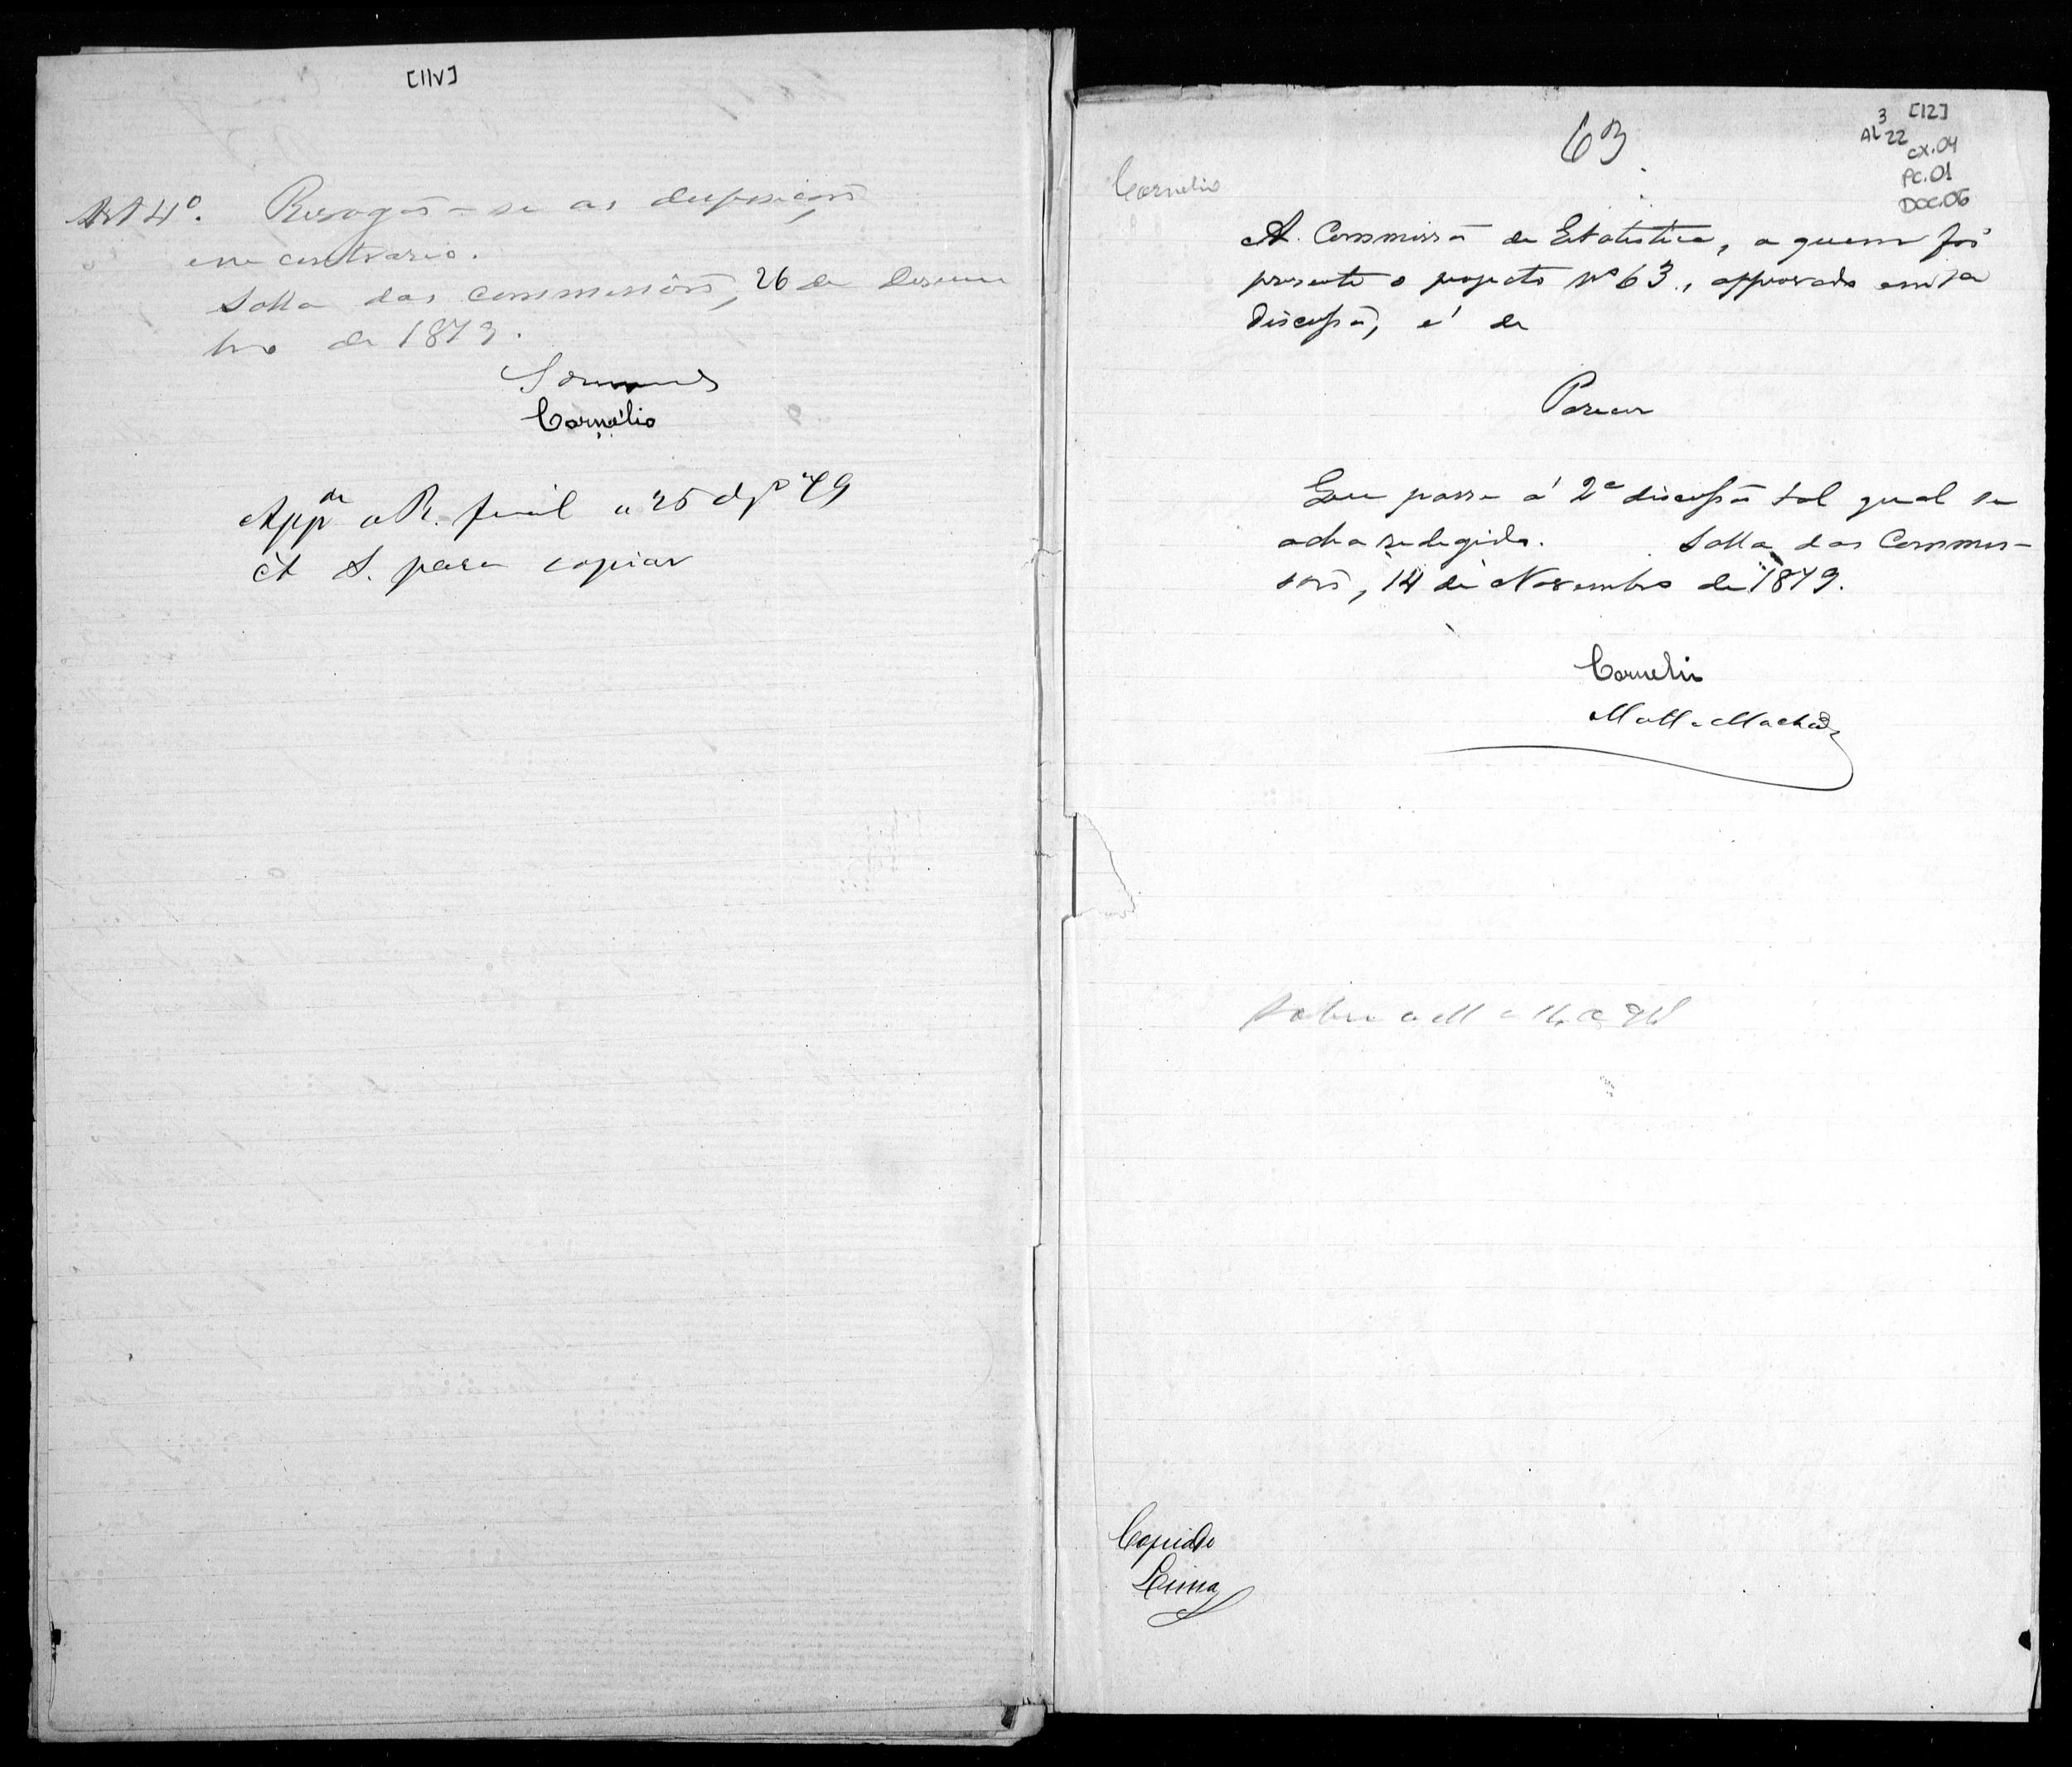 [11v]
Art 4º. Revogão-se as disposiçoes
em contrario.
Salla das commissões, 26 de Desem
bro de 1879.
Cornélio
Appda a R. final a 25 d 79
Á S. para copiar
63
[12]
AL 3 22
cx.04
PC.01
DOC.06
Cornelio
A Commissão de Estatistica, a quem foi
presente o projecto nº 63, approvado em 1a
discussão, é de
Parecer
Que passe á 2a discussão tal qual se
acha redigido. Salla das Commis-
sões, 14 de Novembro de 1879.
Cornelio
Matta Machado
Copiado
Lima